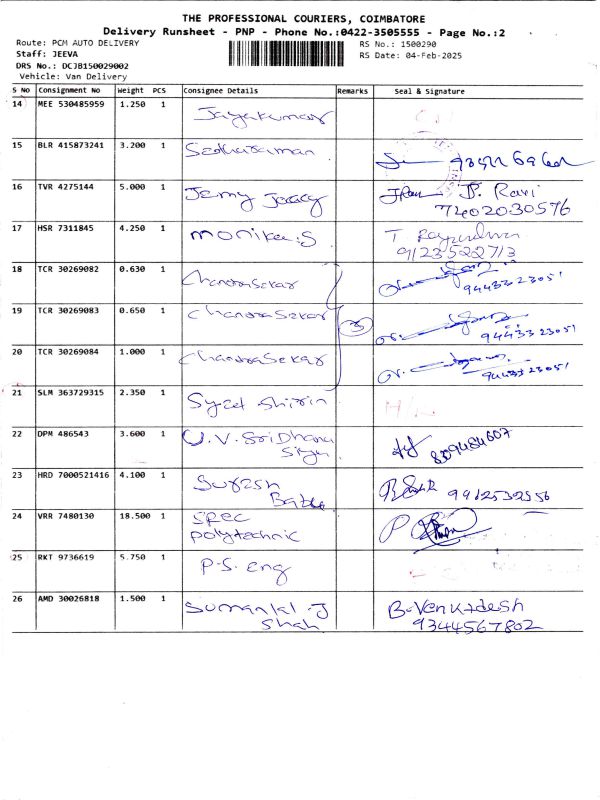 THE PROFESSIONAL COURIERS, COIMBATORE
Delivery Runsheet - PNP - Phone No.:0422-3505555 - Page No.:2
Route: PCM AUTO DELIVERY
RS No.: 1500290
Staff: JEEVA
RS Date: 04-Feb-2025
DRS No.: DCJB150029002
Vehicle: Van Delivery
S No Consignment No Weight PCS Consignee Details Remarks Seal & Signature
14 MEE 530485959 1.250 1 Jayakumar
15 BLR 415873241 3.200 1 Sedharaman
16 TVR 4275144 5.000 1 Jemy Jeacy B. Ravi
7402030576
17 HSR 7311845 4.250 1 monika.S T
9123522713
18 TCR 30269082 0.630 1 ChandraSekar 9443323051
19 TCR 30269083 0.650 1 ChandraSekar 3 9443323051
20 TCR 30269084 1.000 1 ChandraSekar 9443323051
21 SLM 363729315 2.350 1 Syed Shirin
22 DPM 486543 3.600 1 U.V. SriDhana
23 HRD 7000521416 4.100 1 Suresh 9912532556
24 VRR 7480130 18.500 1 SPEC
polytechnic
25 RKT 9736619 5.750 1 P.S. eng
26 AMD 30026818 1.500 1 Sumanlal J B.Venkadesh
Shah 9344567802